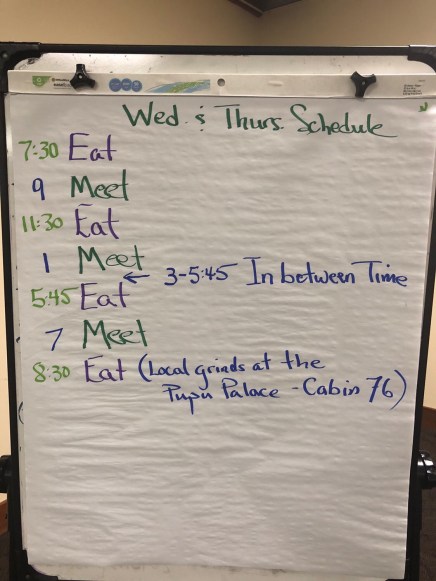 Wed. & Thurs. Schedule
7:30 Eat
9 Meet
11:30 Eat
1 Meet
← 3-5:45 In between Time
5:45 Eat
7 Meet
8:30 Eat (Local grinds at the
Pupu Palace - Cabin 76)